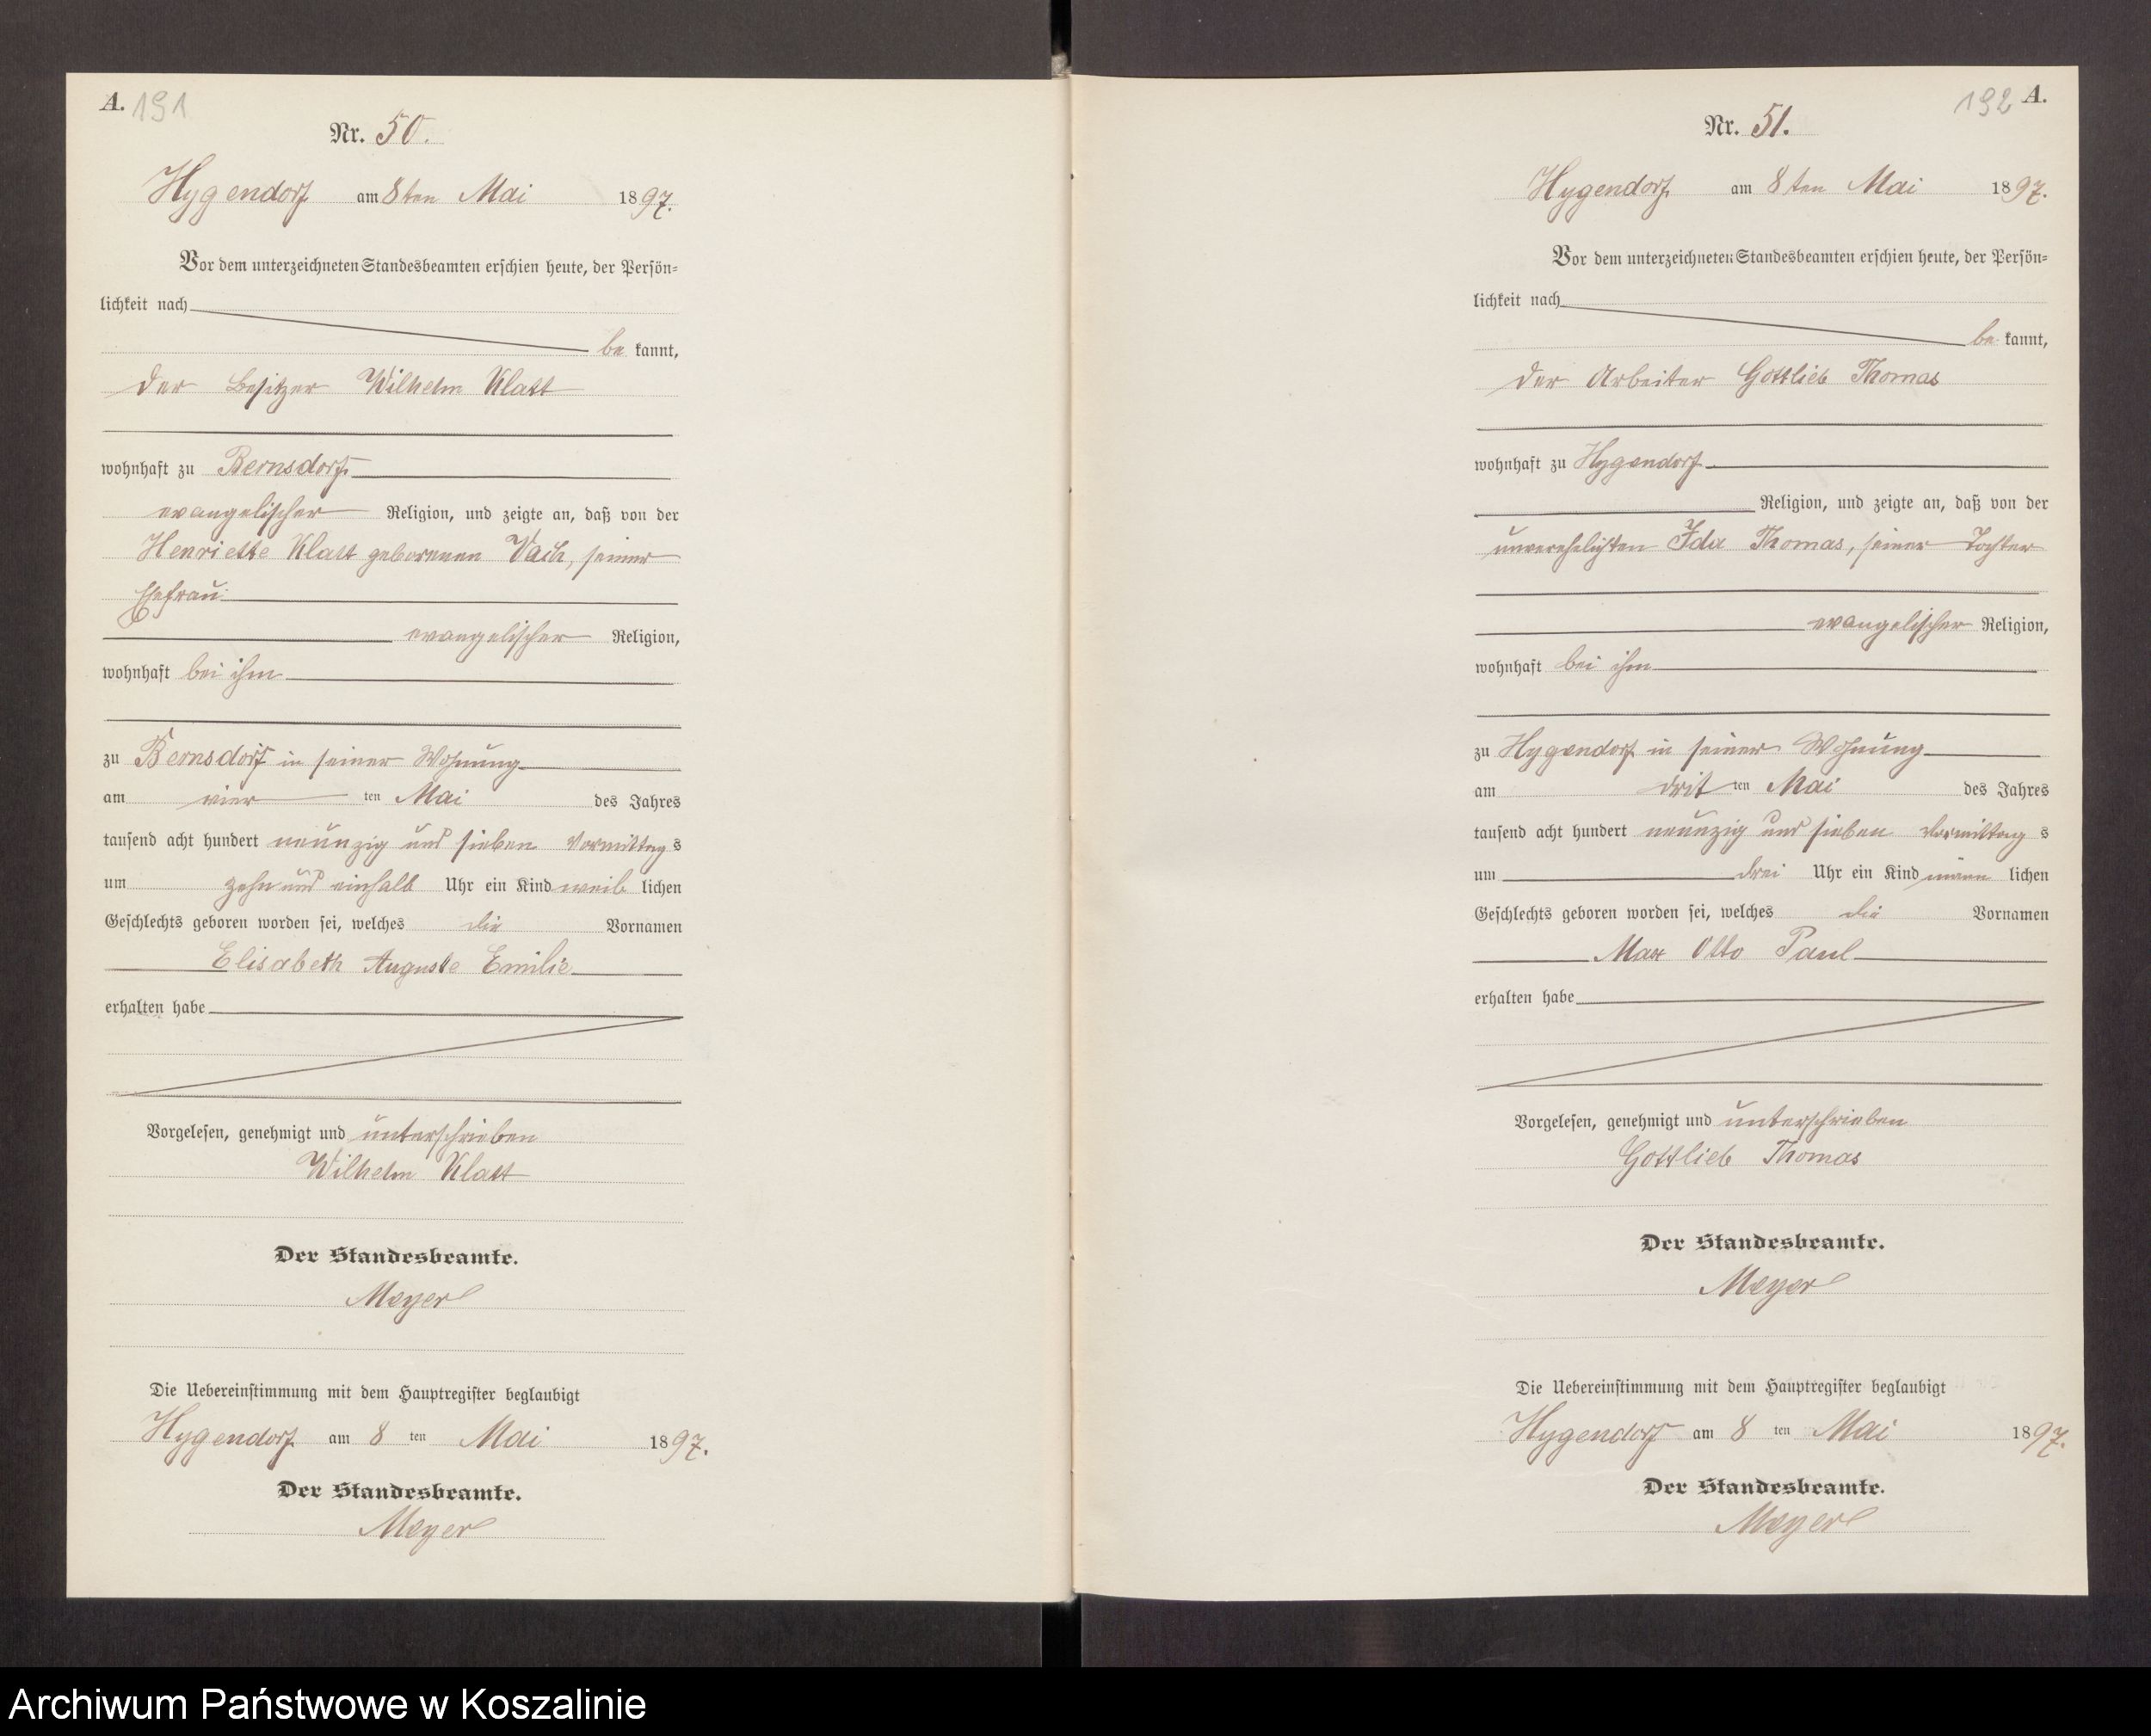 A. 191
Nr. 50.
Hygendorf am 8ten Mai 1897.
Vor dem unterzeichneten Standesbeamten erschien heute, der Persön-
lichkeit nach
be kannt,
der Besitzer Wilhelm Klatt
wohnhaft zu Bernsdorf
evangelischer Religion, und zeigte an, daß von der
Henriette Klatt geborenen, seiner
Ehefrau
evangelischer Religion,
wohnhaft bei ihm
zu Bernsdorf in seiner Wohnung
am vier ten Mai des Jahres
tausend acht hundert neunzig und sieben Vormittag s
um zehn und einhalb Uhr ein Kind weib lichen
Geschlechts geboren worden sei, welches die Vornamen
Elisabeth Auguste Emilie
erhalten habe
Vorgelesen, genehmigt und unterschrieben
Wilhelm Klatt
Der Standesbeamte.
Meyer
Die Uebereinstimmung mit dem Hauptregister beglaubigt
Hygendorf am 8 ten Mai 1897.
Der Standesbeamte.
Meyer
192 A.
Nr. 51.
Hygendorf am 8ten Mai 1897.
Vor dem unterzeichneten Standesbeamten erschien heute, der Persön-
lichkeit nach
be kannt,
der Arbeiter Gottlieb Thomas
wohnhaft zu Hygendorf
Religion, und zeigte an, daß von der
unverehelichten Ida Thomas, seiner Tochter
evangelischer Religion,
wohnhaft bei ihm
zu Hygendorf in seiner Wohnung
am drit ten Mai des Jahres
tausend acht hundert neunzig und sieben Vormittag s
um drei Uhr ein Kind männ lichen
Geschlechts geboren worden sei, welches die Vornamen
Max Otto Paul
erhalten habe
Vorgelesen, genehmigt und unterschrieben
Gottlieb Thomas
Der Standesbeamte.
Meyer
Die Uebereinstimmung mit dem Hauptregister beglaubigt
Hygendorf am 8 ten Mai 1897.
Der Standesbeamte.
Meyer
Archiwum Państwowe w Koszalinie